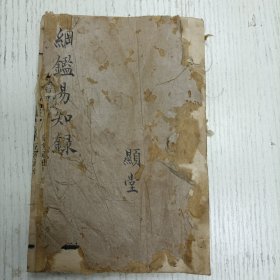 綱鑑易知録
顯堂